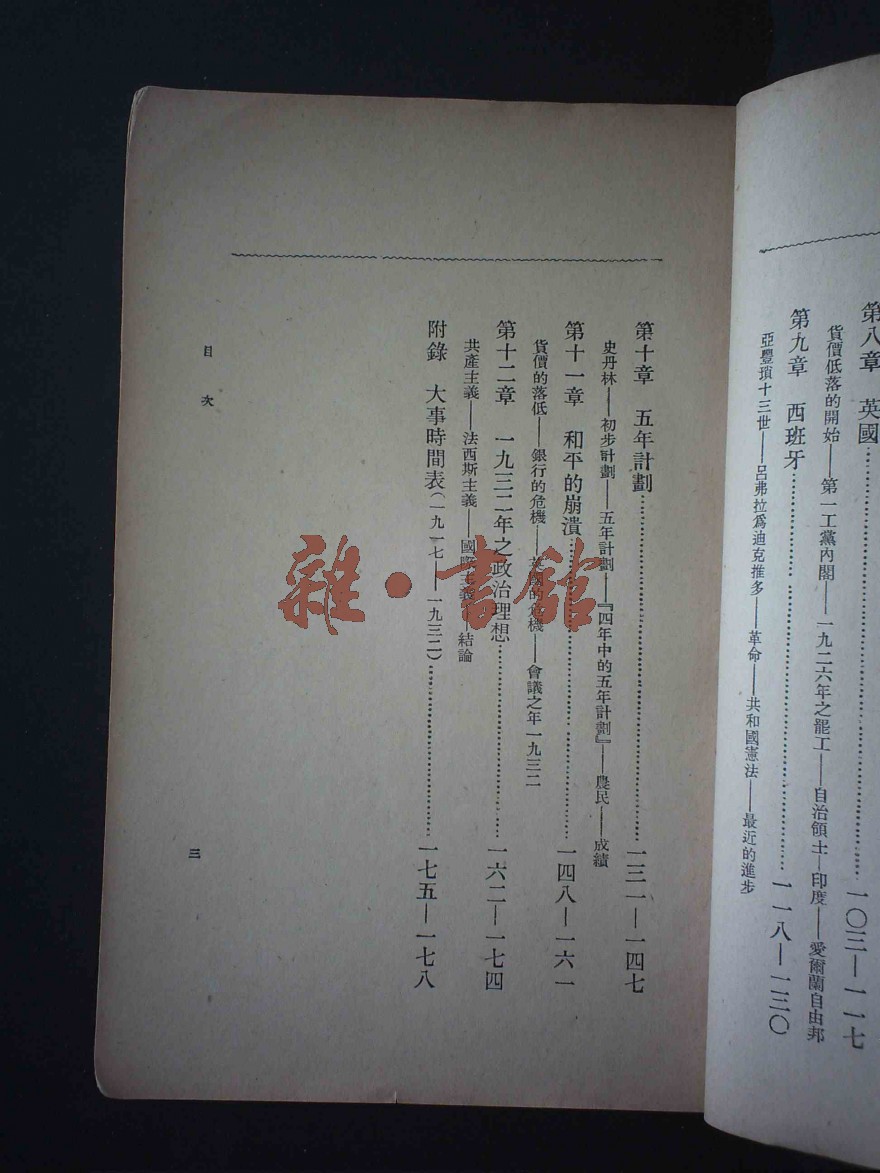 第八章　英國……一〇三—一一七
貨價低落的開始——第一工黨內閣——一九二六年之罷工——自治領土—印度——愛爾蘭自由邦
第九章　西班牙……一一八—一三〇
亞豐瑣十三世——呂弗拉爲迪克推多——革命——共和國憲法——最近的進步
第十章　五年計劃……一三一—一四七
史丹林——初步計劃——五年計劃——『四年中的五年計劃』——農民——成績
第十一章　和平的崩潰……一四八—一六一
貨價的落低——銀行的危機——英國的危機——會議之年一九三二
第十二章　一九三二年之政治理想……一六二—一七四
共產主義——法西斯主義——國際主義——結論
附錄　大事時間表(一九一七——一九三二)……一七五—一七八
目次
三
雜·書館